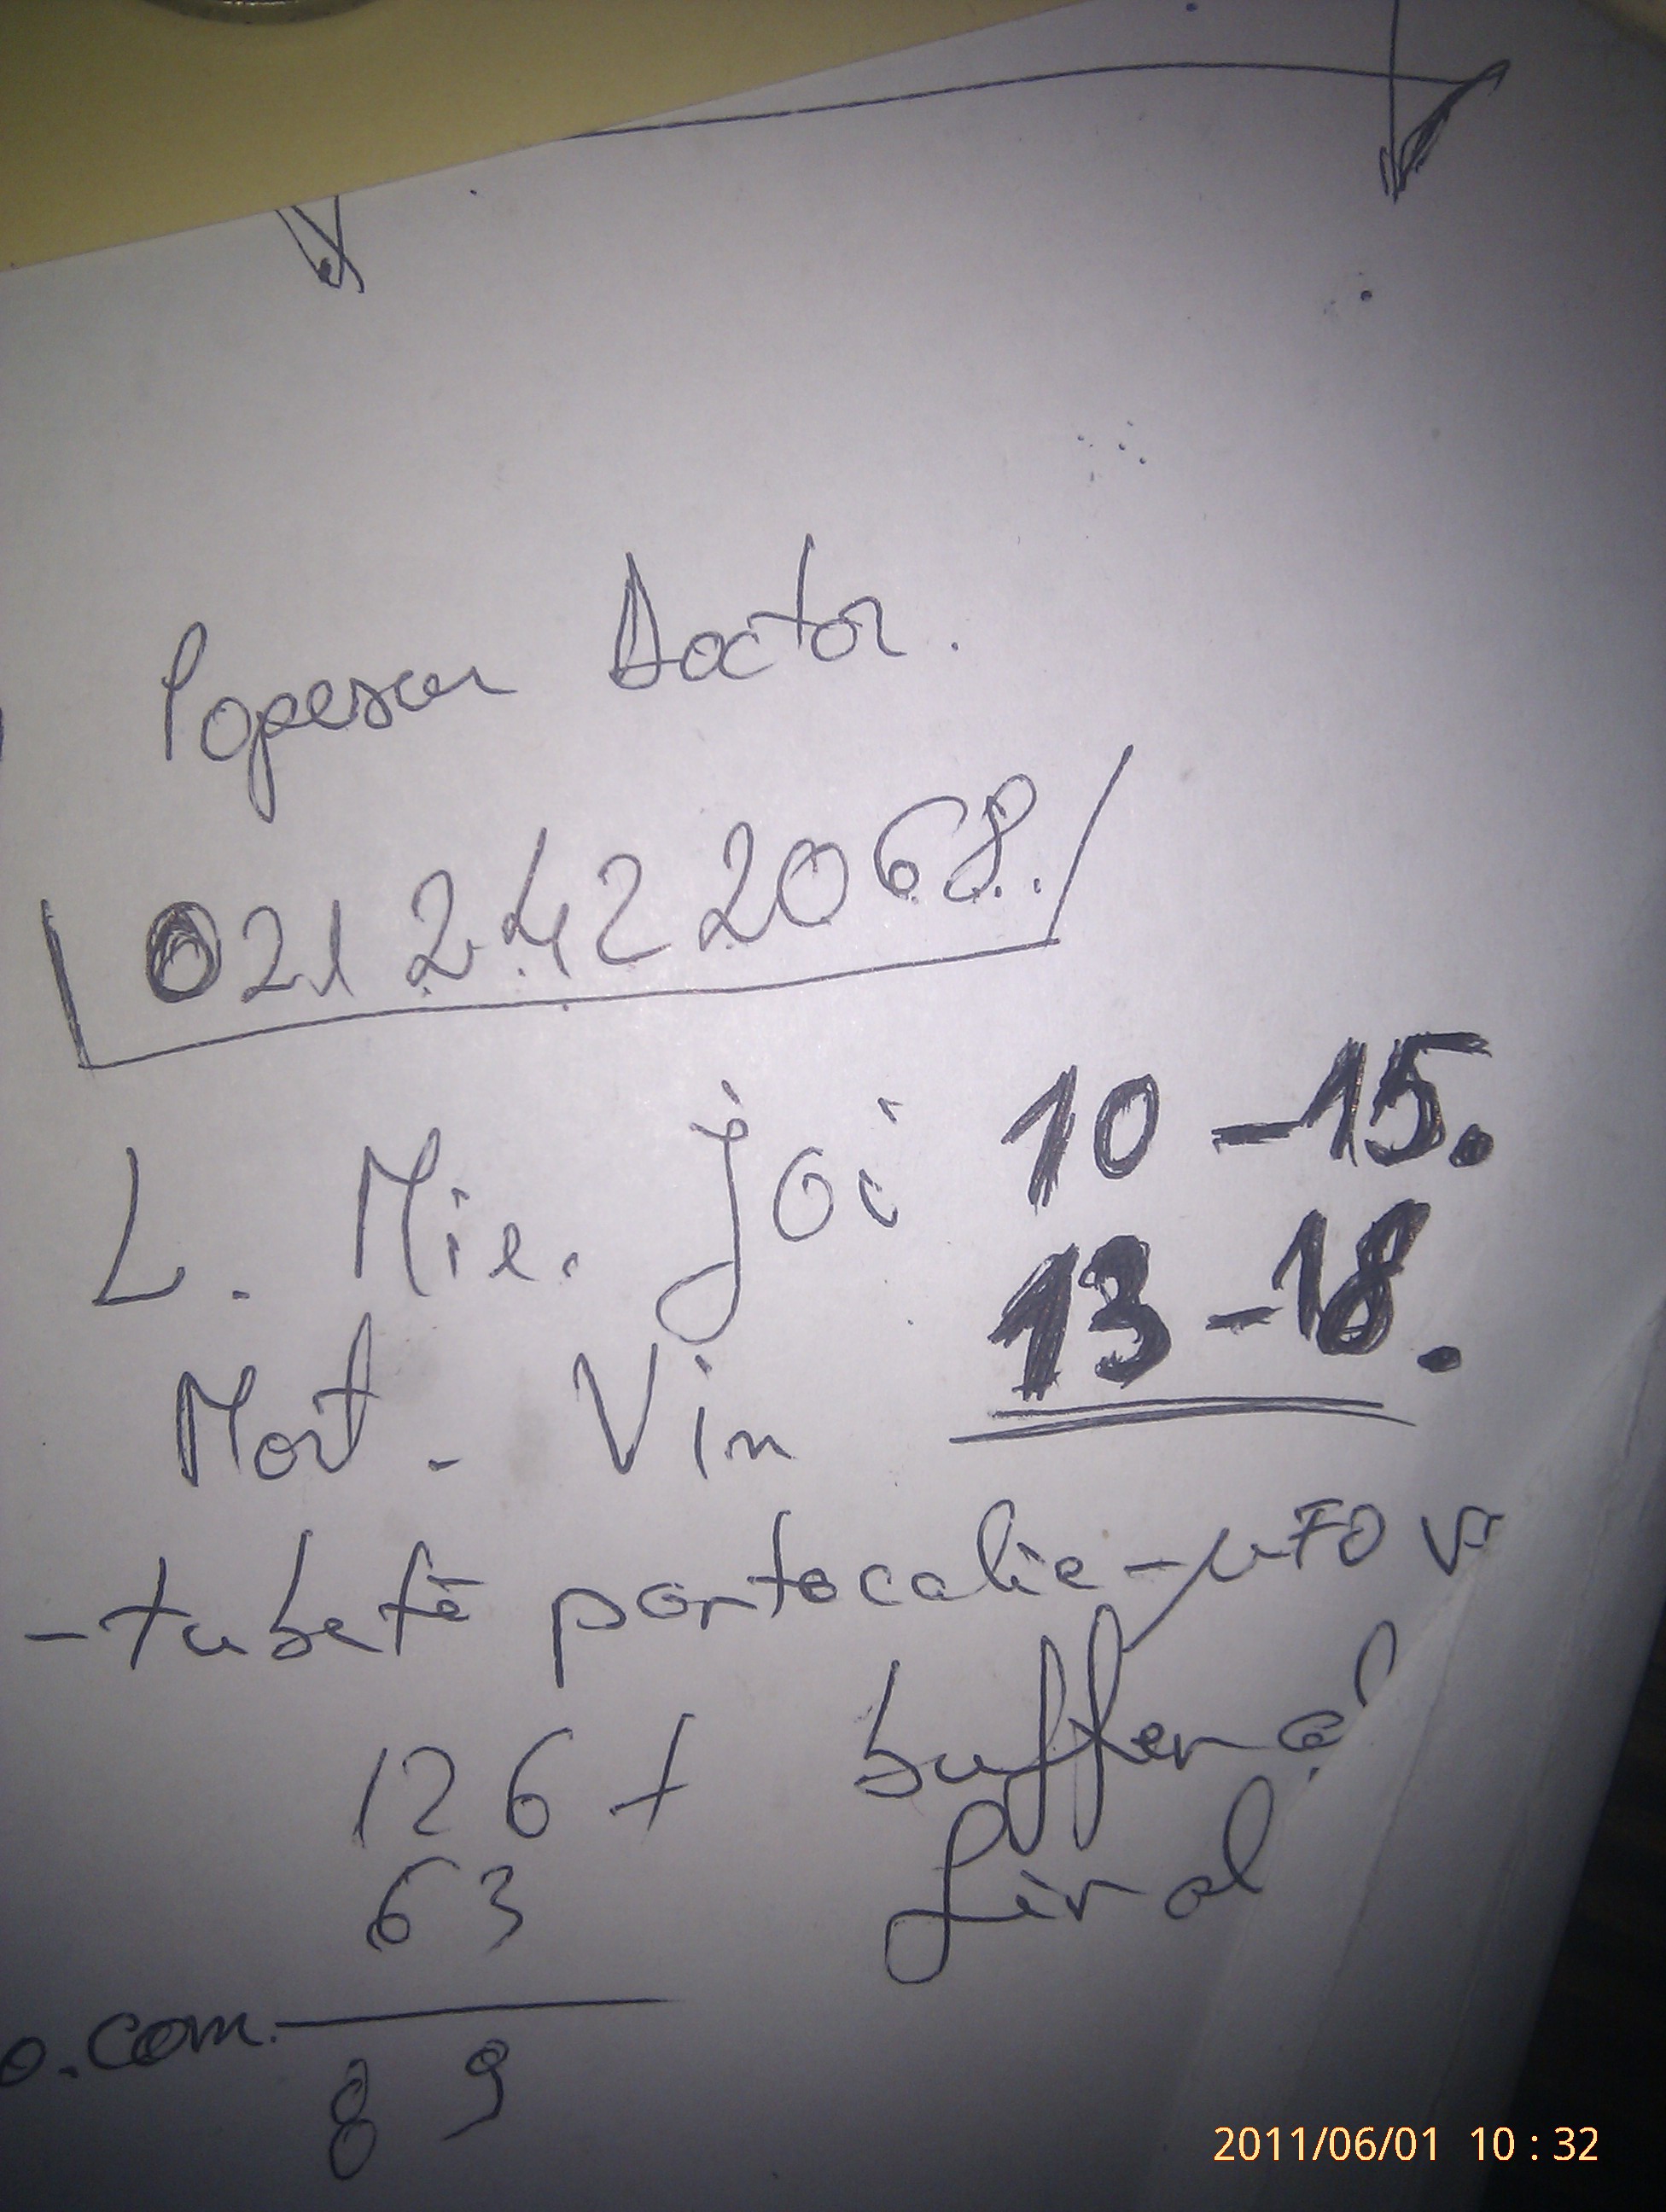 Popescu Doctor.
021 242 2068.
L. Mie. Joi 10-15.
Mart. Vin 13-18.
- tubetě portocalie - μTO V
buffer al
126 +
final
63
o.com.
89
2011/06/01 10:32